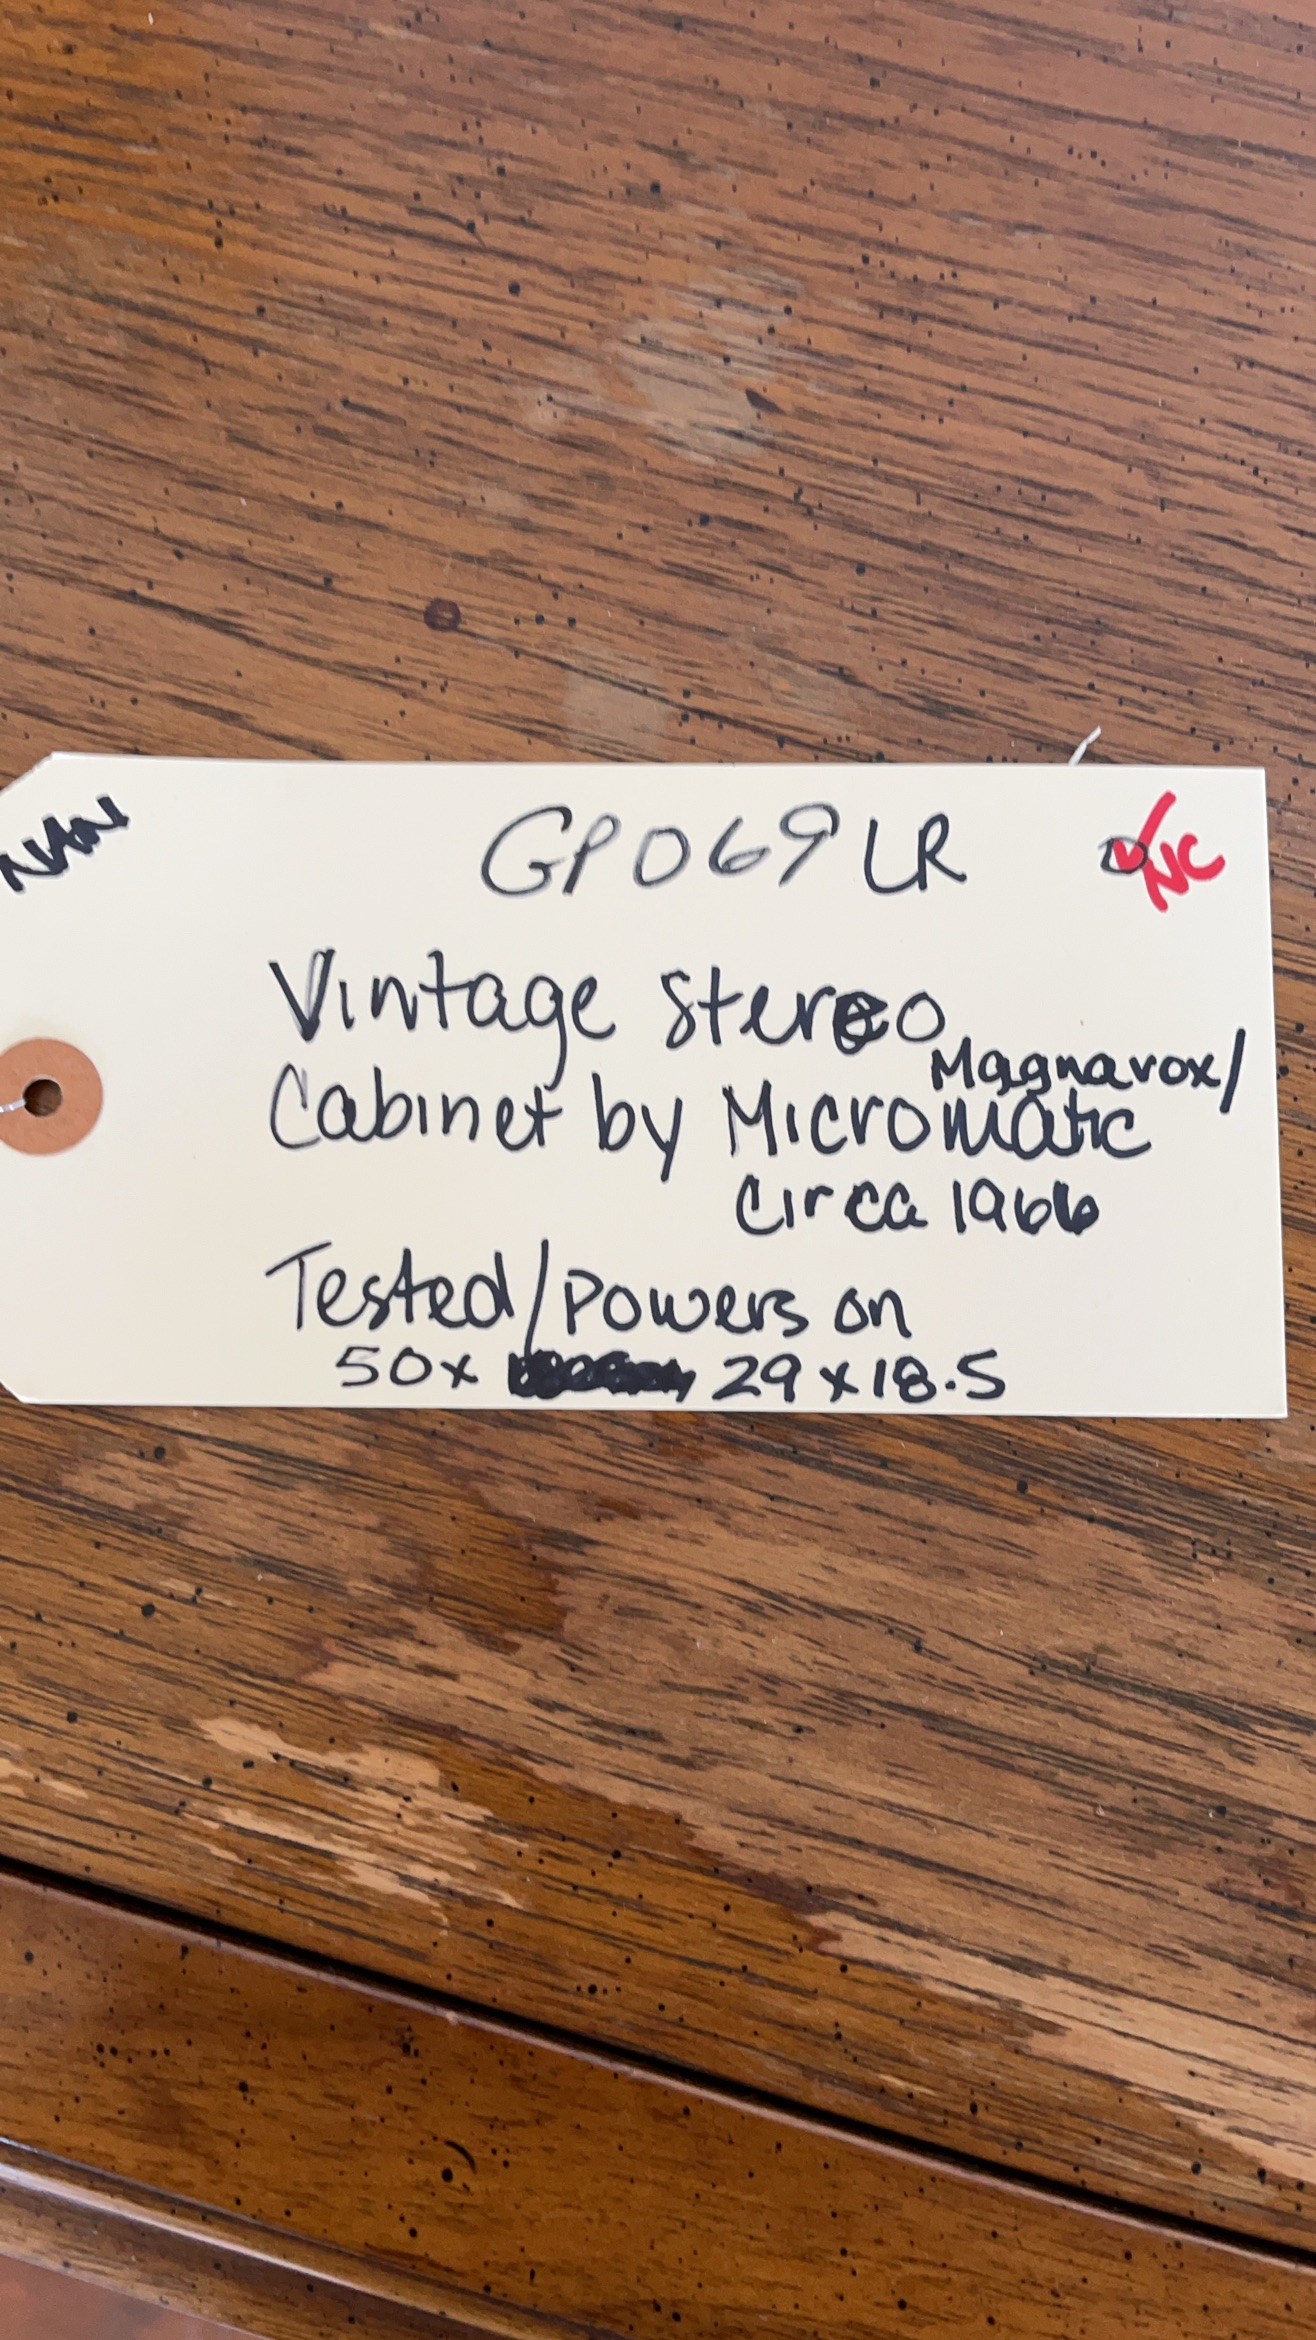 NAN
GP069LR
NC
Vintage Stereo
Magnavox/
Cabinet by Micromatic
Circa 1966
Tested/Powers on
50x 29x18.5